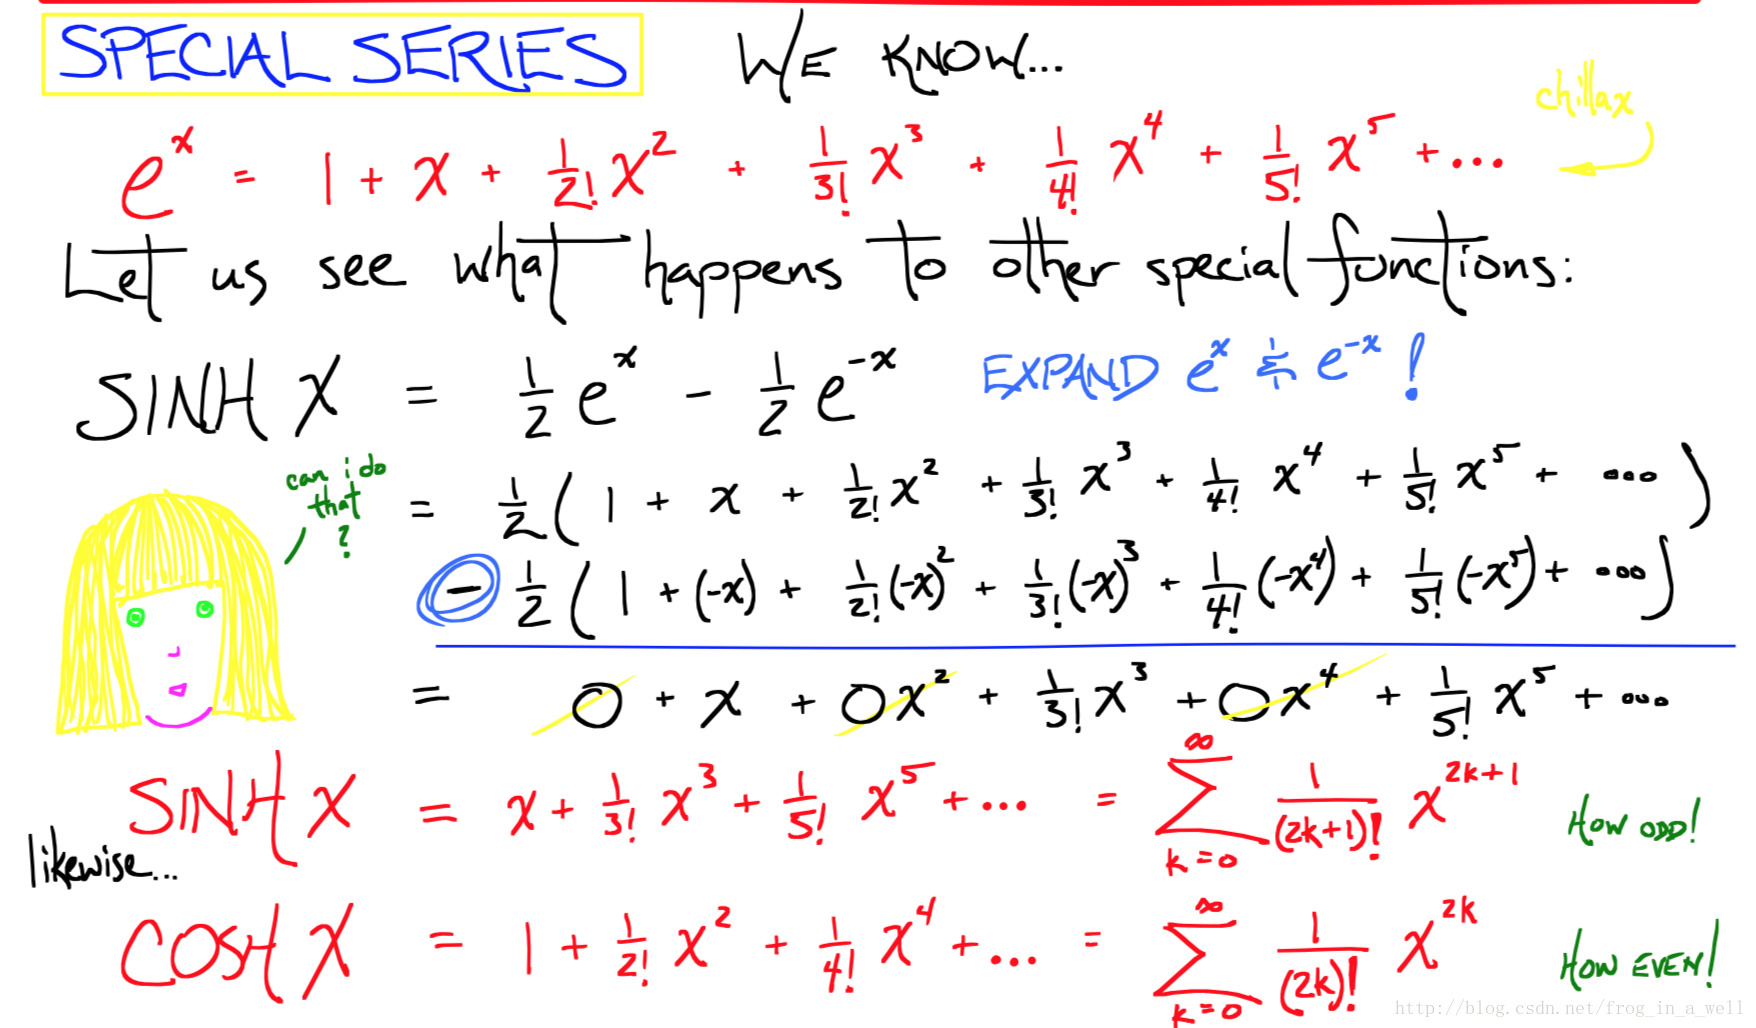 SPECIAL SERIES WE KNOW...
chillax
eˣ = 1 + x + 1/2! x² + 1/3! x³ + 1/4! x⁴ + 1/5! x⁵ + ...
Let us see what happens to other special functions:
SINH X = 1/2 eˣ - 1/2 e⁻ˣ EXPAND eˣ & e⁻ˣ!
can i do
that
?
= 1/2 (1 + x + 1/2! x² + 1/3! x³ + 1/4! x⁴ + 1/5! x⁵ + ...)
- 1/2 (1 + (-x) + 1/2! (-x)² + 1/3! (-x)³ + 1/4! (-x⁴) + 1/5! (-x⁵) + ...)
= 0 + x + 0x² + 1/3! x³ + 0x⁴ + 1/5! x⁵ + ...
SINH X = x + 1/3! x³ + 1/5! x⁵ + ... = ∑_{k=0}^{∞} 1/(2k+1)! x^{2k+1} HOW ODD!
likewise...
COSH X = 1 + 1/2! x² + 1/4! x⁴ + ... = ∑_{k=0}^{∞} 1/(2k)! x^{2k} HOW EVEN!
http://blog.csdn.net/frog_in_a_well